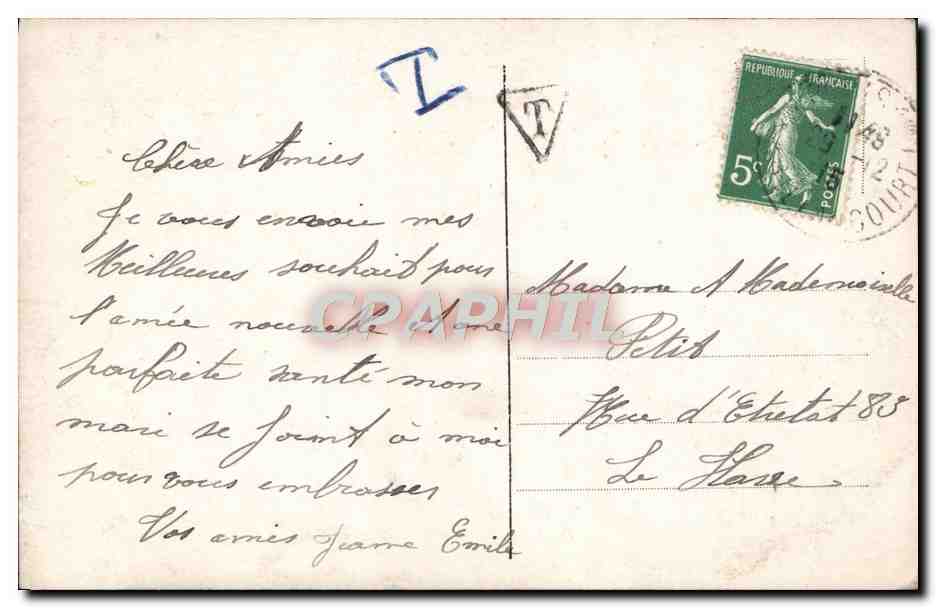 T
T
REPUBLIQUE FRANÇAISE
5c
POSTES
COURT
12
Chère Amies
Je vous envoie mes
Meilleures souhait pour
l'année nouvelle et une
parfaite santé mon
mari se joint à moi
pour vous embrasser
Vos amies Jeanne Emile
Madame et Mademoiselle
Petit
Rue d'Etretat 83
Le Havre
CPAPHIL